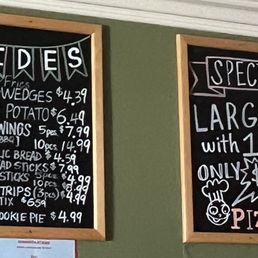 IDES
Fries
WEDGES $4.39
POTATO $6.49
WINGS 5pcs $7.99
BBQ] 10pcs 14.99
LIC BREAD $4.59
AD STICKS $7.99
STICKS 5pcs $4.99
10pcs $8.99
STRIPS [3pcs] $4.99
TIX $6.59
OOKIE PIE $4.99
SPEC
LARG
with 1
ONLY $
PIZ